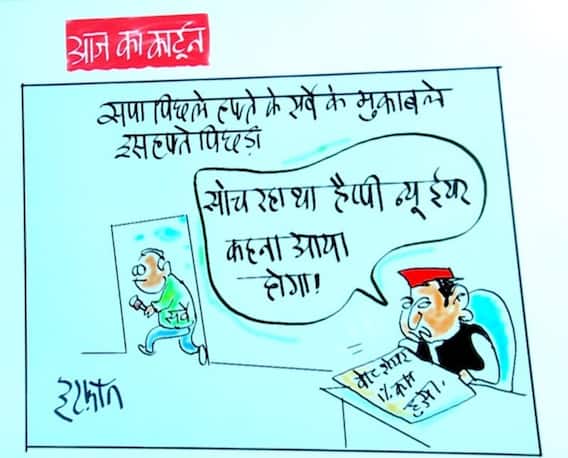 आज का कार्टून
सपा पिछले हफ्ते के सर्वे के मुकाबले
इस हफ्ते पिछड़ी
सोच रहा था हैप्पी न्यू ईयर
कहना आया
होगा!
सर्वे
वोट शेयर
1% कम
हुआ!
इरफ़ान